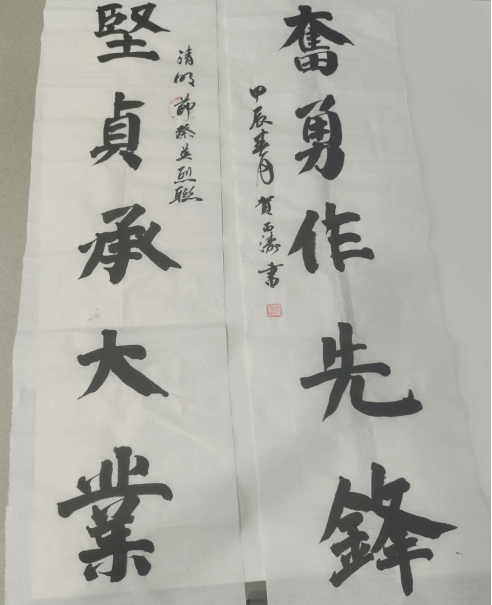 堅貞承大業
清明節祭英烈聯
奮勇作先鋒
甲辰春月賀書